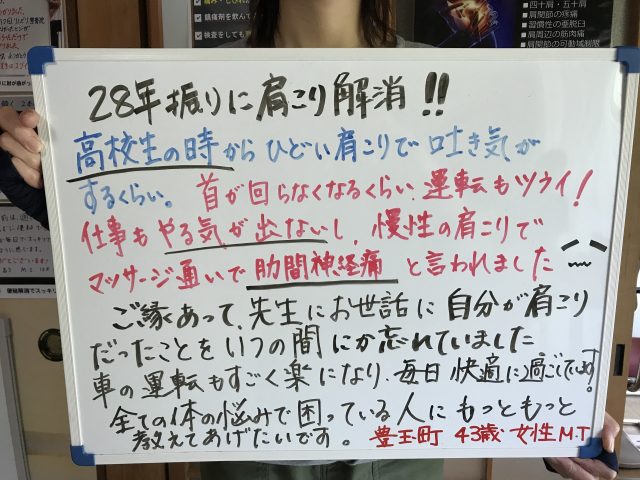 四十肩・五十肩
肩関節の疼痛
習慣性の亜脱臼
肩周辺の筋肉痛
肩関節の可動域制限
28年振りに肩こり解消!!
高校生の時からひどい肩こりで吐き気が
するくらい。首が回らなくなるくらい、運転もツライ!
仕事もやる気が出ないし、慢性の肩こりで
マッサージ通いで肋間神経痛と言われました
ご縁あって、先生にお世話に自分が肩こり
だったことをいつの間にか忘れていました
車の運転もすごく楽になり、毎日快適に過ごしています!
全ての体の悩みで困っている人にもっともっと
教えてあげたいです。豊玉町 43歳 女性 M.T